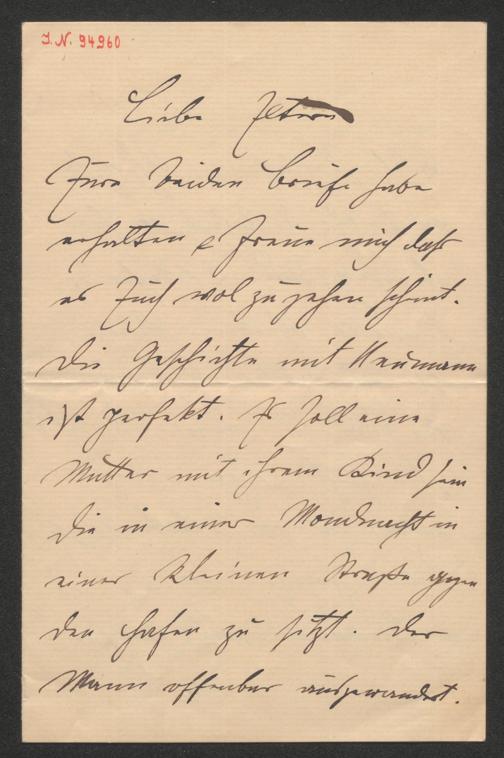 J.N. 94960
Liebe Eltern
Eure beiden Briefe habe
erhalten & freue mich daß
es Euch wol zu gehen scheint.
Die Geschichte mit Neumann
ist perfekt. Es soll eine
Mutter mit ihrem Kind sein
die in einer Mondnacht in
einer kleinen Straße gegen
den Hafen zu sitzt. Der
Mann offenbar ausgewandert.